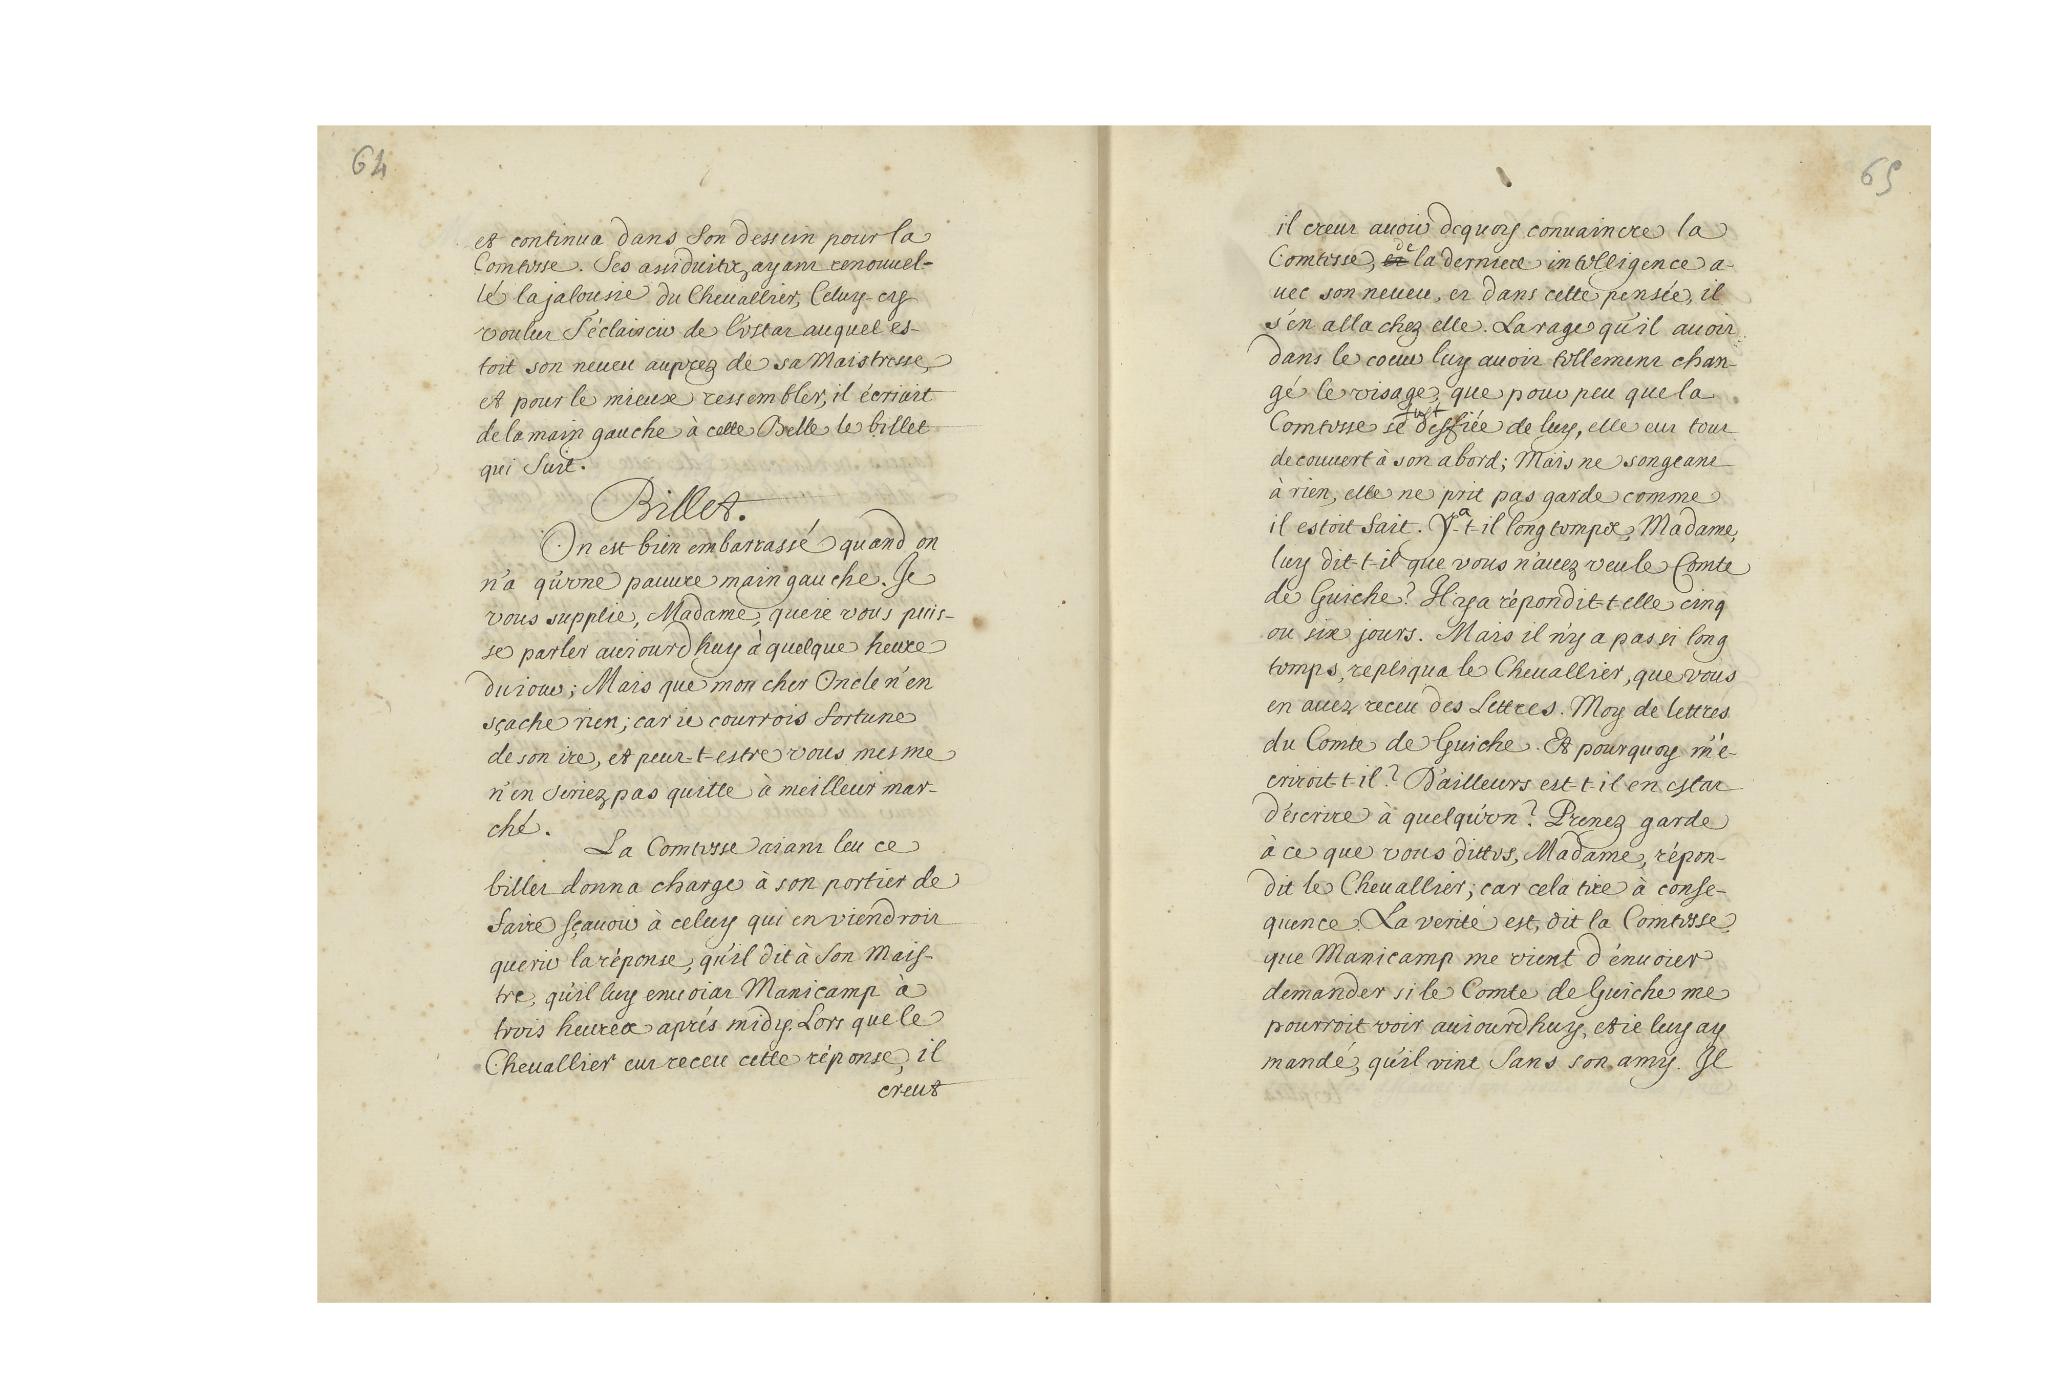 64
et continua dans son dessein pour la
Comtesse. Ses assiduitez ayant renouuel-
lé la jalousie du Cheuallier, Celuy-cy
voulut s'éclaircir de l'estat auquel es-
toit son neueu auprez de sa Maistresse,
et pour le mieux ressembler, il écriuit
de la main gauche à cette Belle le billet
qui suit.
Billet.
On est bien embarrassé quand on
n'a qu'vne pauure main gauche. Je
vous supplie, Madame, que ie vous puis-
se parler auiourd'huy à quelque heure
du iour; Mais que mon cher Oncle n'en
sçache rien; car ie courrois fortune
de son ire, et peut-t-estre vous mesme
n'en seriez pas quitte à meilleur mar-
ché.
La Comtesse aiant leu ce
billet donna charge à son portier de
faire sçauoir à celuy qui en viendroit
querir la réponse, qu'il dit à son Mais-
tre, qu'il luy enuoiat Manicamp à
trois heures aprés midy. Lors que le
Cheuallier eut receu cette réponse, il
creut
65
il creut auoir dequoy conuaincre la
Comtesse, de la derniere intelligence a-
uec son neueu, et dans cette pensée, il
s'en alla chez elle. La rage qu'il auoit
dans le coeur luy auoit tellement chan-
gé le visage, que pour peu que la
Comtesse se fust deffiée de luy, elle eut tout
decouuert à son abord; Mais ne songeant
à rien, elle ne prit pas garde comme
il estoit fait. Y-a-t-il long temps, Madame,
luy dit-t-il que vous n'auez veu le Comte
de Guiche? Il y a répondit-t-elle cinq
ou six jours. Mais il n'y a pas si long
temps, repliqua le Cheuallier, que vous
en auez receu des Lettres. Moy de lettres
du Comte de Guiche. Et pourquoy m'é-
criroit-t-il? D'ailleurs est-t-il en estat
d'éscrire à quelqu'vn? Prenez garde
à ce que vous dittes, Madame, répon-
dit le Cheuallier; car cela tire à conse-
quence. La verité est, dit la Comtesse,
que Manicamp me vient d'énuoier
demander si le Comte de Guiche me
pourroit voir auiourd'huy, et ie luy ay
mandé, qu'il vint sans son amy. Il